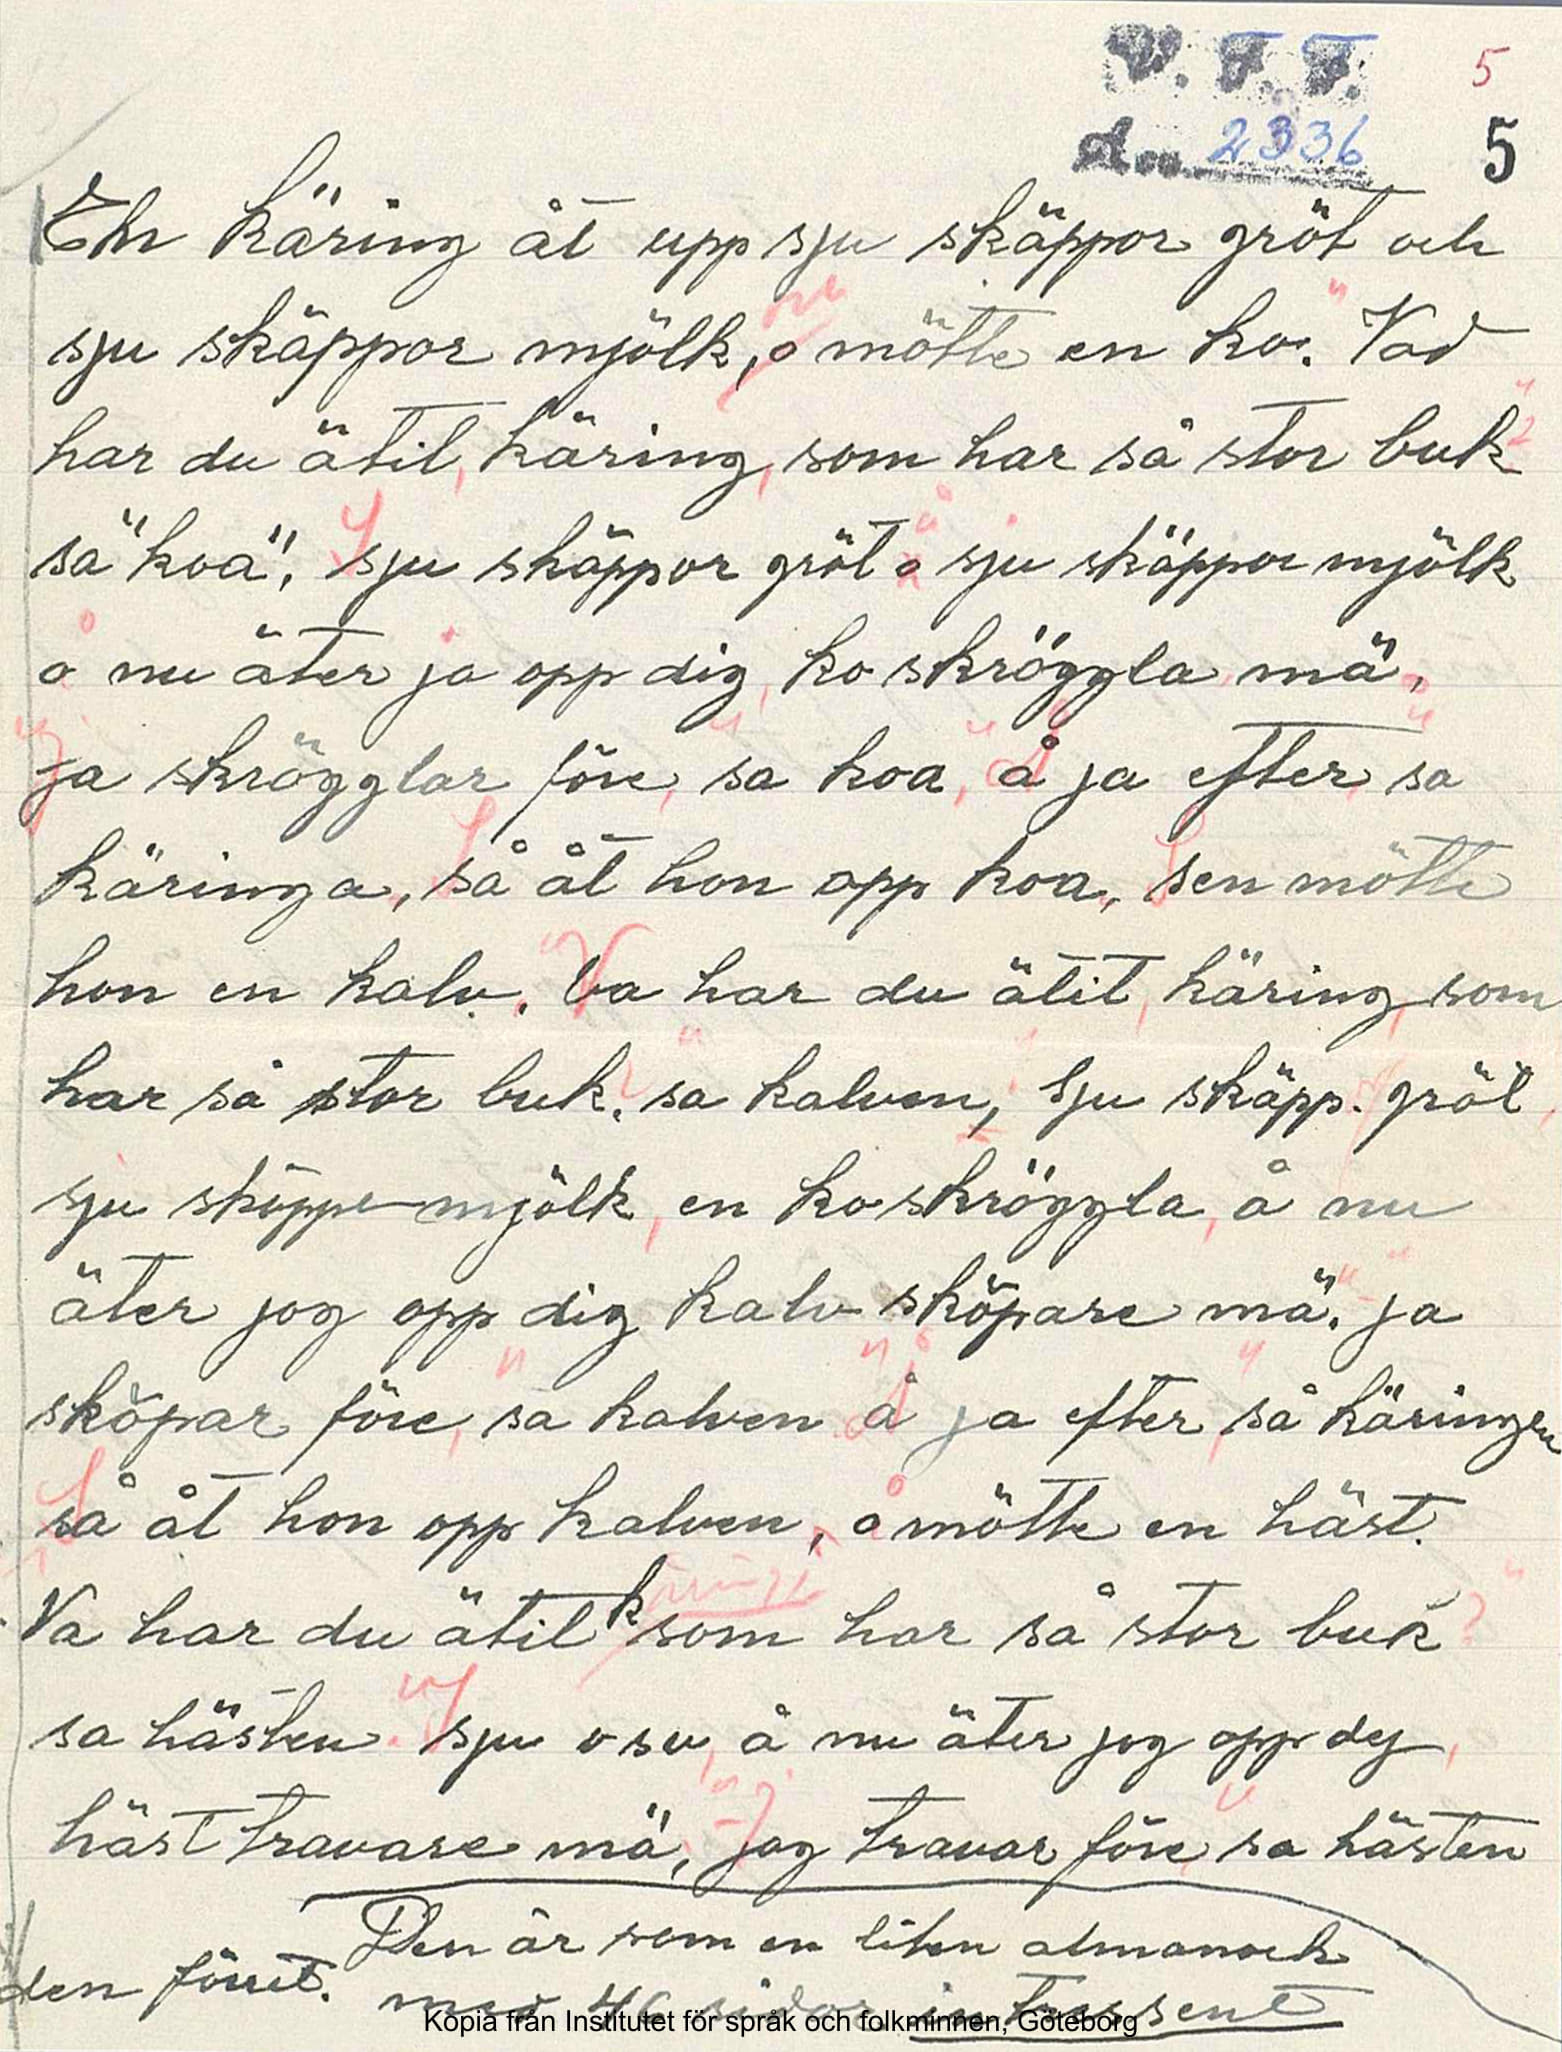 V. F. F.
5
d.... 2336
5
En käring åt upp sju skäppor gröt och
sju skäppor mjölk, o mötte en ko. Vad
har du ätit, käring, som har så stor buk
sa "koa", sju skäppor gröt o sju skäppor mjölk
o nu äter ja opp dig, ko skröggla mä,
ja skrögglar före, sa koa, å ja efter, sa
käringa, så åt hon opp koa, sen mötte
hon en kalv. Va har du ätit, käring, som
har så stor buk, sa kalven, sju skäpp. gröt,
sju skäppe mjölk, en koskröggla, å nu
äter jag opp dig kalv sköpare mä. ja
sköpar före, sa kalven å ja efter, så käringen
så åt hon opp kalven, o mötte en häst.
Va har du ätit k som har så stor buk?
sa hästen. sju osv, å nu äter jag opp dej,
häst travare mä, jag travar före, sa hästen
Den är som en liten almanack
den förut. med 46 sidor intressent
Kopia från Institutet för språk och folkminnen, Göteborg